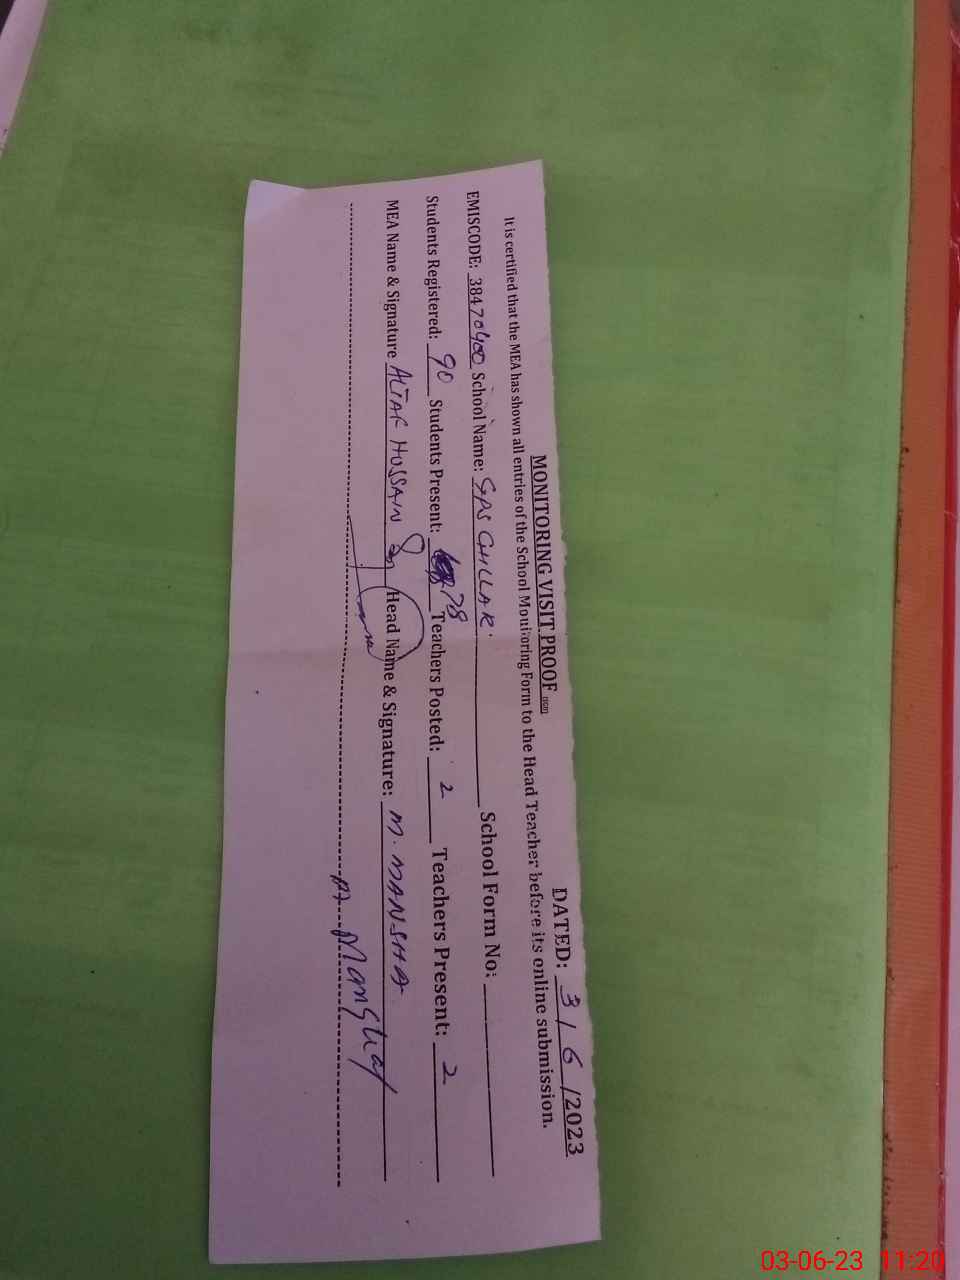 MONITORING VISIT PROOF DATED: 3 / 6 /2023
It is certified that the MEA has shown all entries of the School Monitoring Form to the Head Teacher before its online submission.
EMISCODE: 38470400 School Name: GPS CHILLAR. School Form No:
Students Registered: 90 Students Present: 78 Teachers Posted: 2 Teachers Present: 2
MEA Name & Signature ALTAF HUSSAIN Head Name & Signature: M. MANSHA
03-06-23 11:20